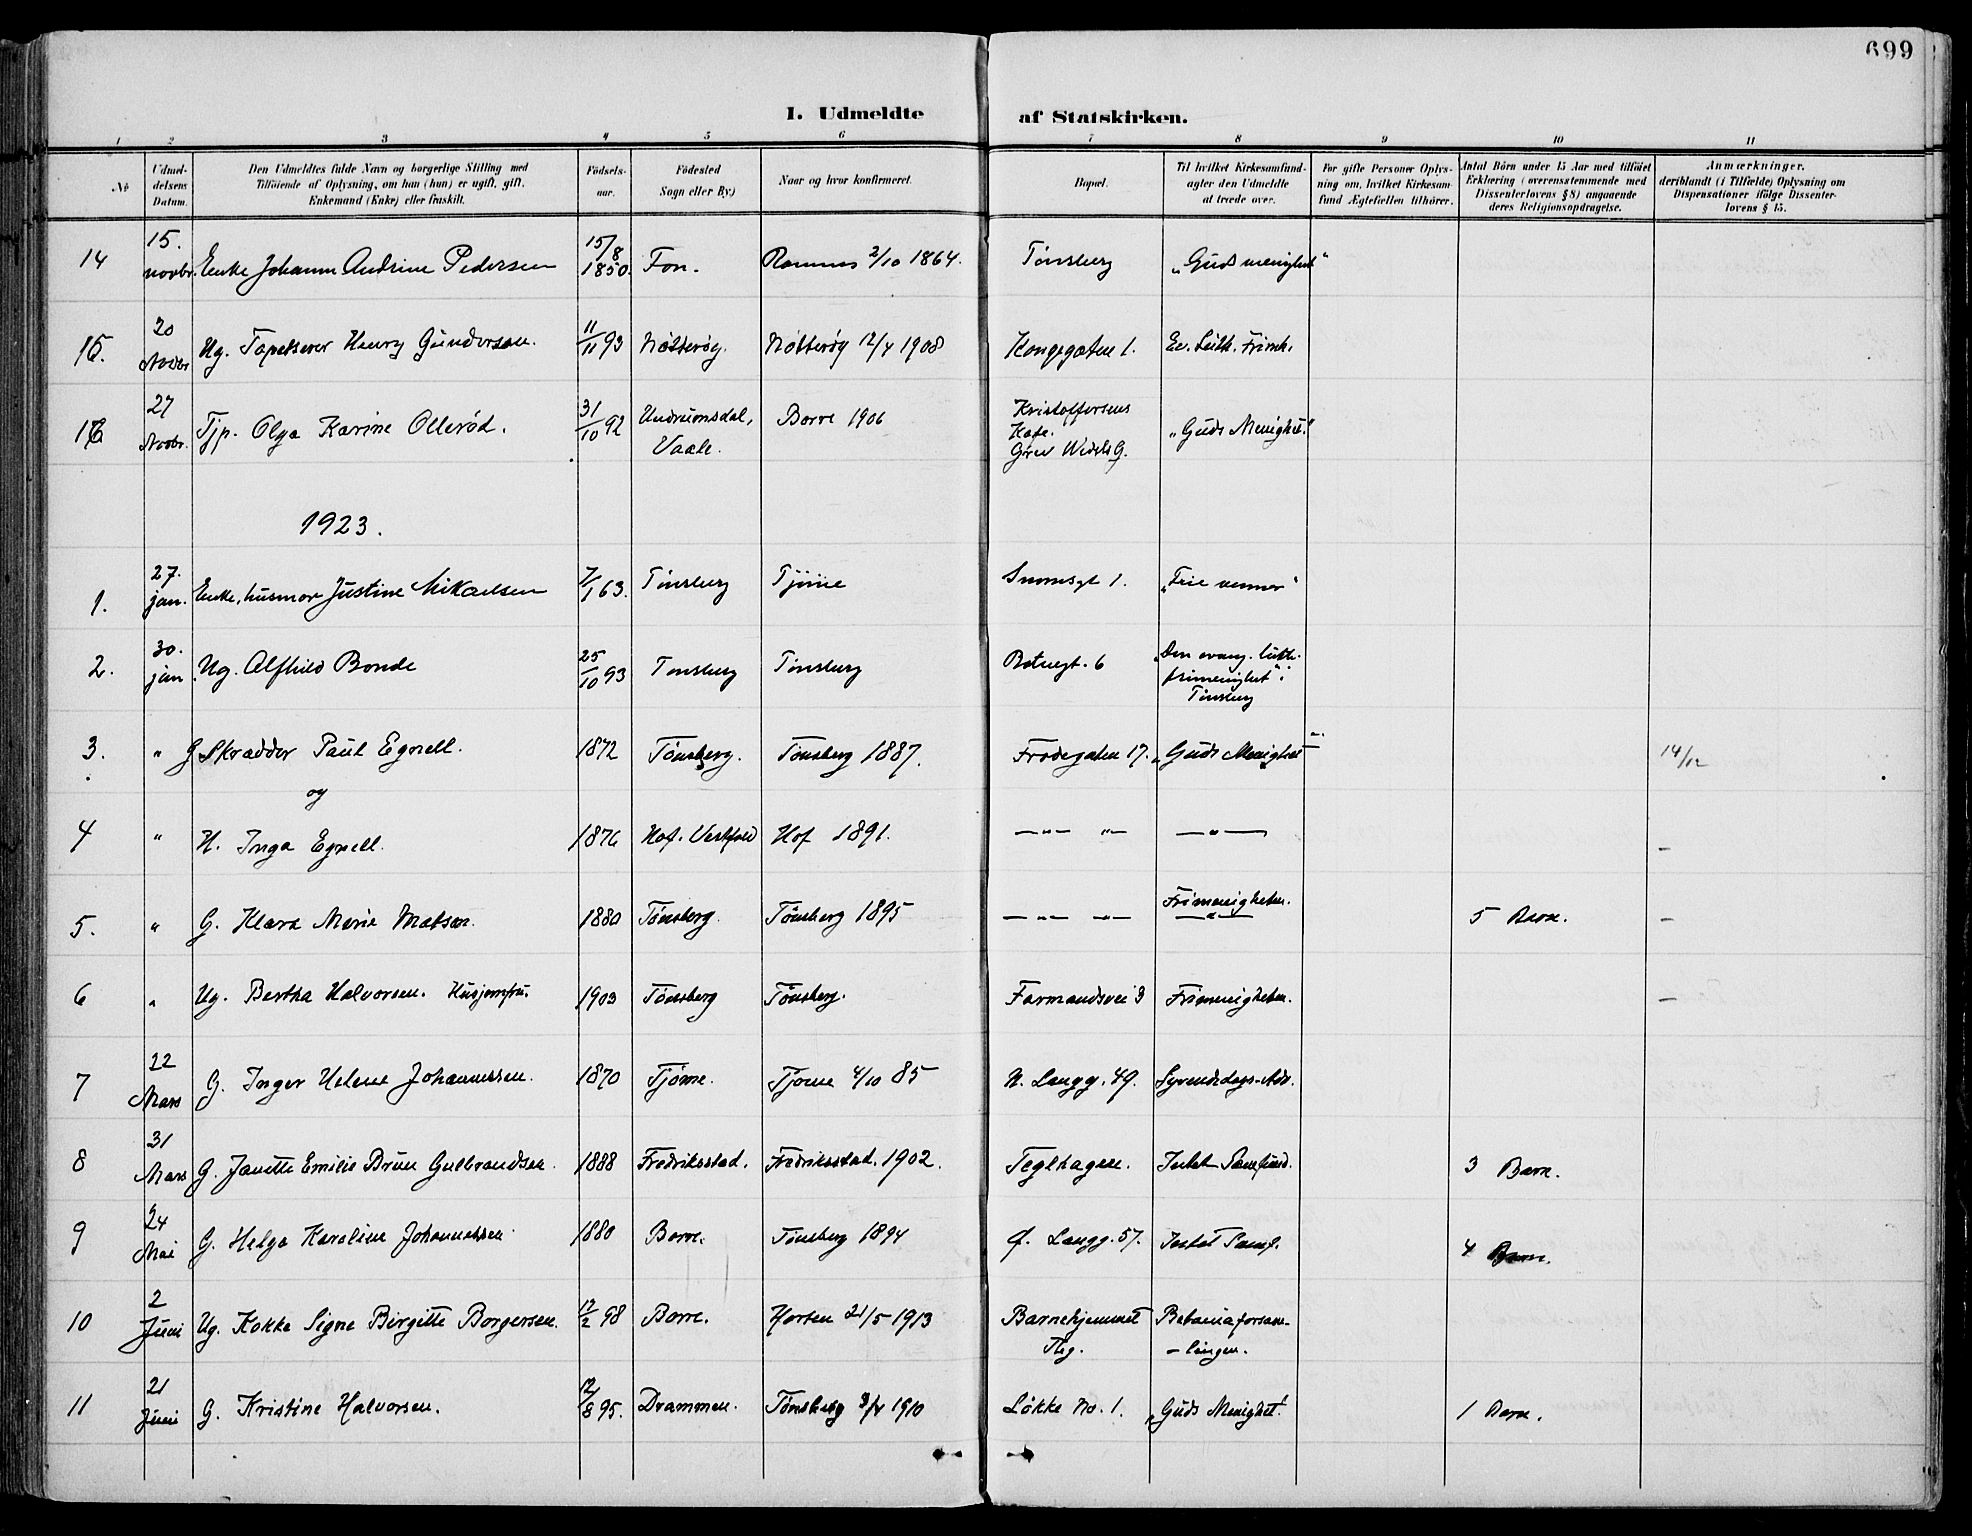 699
I. Udmeldte af Statskirken.
1 2 3 4 5 6 7 8 9 10 11
No
Udmeldelsens Datum.
Den Udmeldtes fulde Navn og borgerlige Stilling med Tilföiende af Oplysning, om han (hun) er ugift, gift, Enkemand (Enke) eller fraskilt.
Födselsaar.
Födested Sogn eller By.)
Naar og hvor konfirmeret.
Bopæl.
Til hvilket Kirkesamfund agter den Udmeldte at træde over.
For gifte Personer Oplysning om, hvilket Kirkesamfund Ægtefællen tilhører.
Antal Börn under 15 Aar med tilföiet Erklæring (overensstemmende med Dissenterlovens § 8) angaaende deres Religionsopdragelse.
Anmærkninger, deriblandt (i Tilfælde) Oplysning om Dispensationer ifölge Dissenterlovens § 15.
14 15. novbr. Enke Johanne Andrine Pedersen 15/8 1850. Fon. Ramnes 2/10 1864. Tönsberg "Guds menighet"
15. 20 Novbr Ug. Tapetserer Henry Gundersen. 11/11 93 Nötteröy. Nötteröy 12/4 1908 Kongegaten 1. Ev. Luth. Frimh.
16 27 Novbr. Tjp. Olga Karine Olleröd. 31/10 92 Undrumsdal, Vaale. Borre 1906 Kristoffersens Kafe. Grev Wedels G. "Guds Menighet."
1923.
1. 27. jan. Enke, husmor Justine Mikaelsen 7/1 63. Tönsberg Tjöme Snorresgt 1. "Frie venner"
2. 30. jan. Ug. Alfhild Bonde 25/10 93 Tönsberg Tönsberg Botnegt. 6 "Den evang. luth. frimenighet" i Tönsberg
3. " G Skrædder Paul Egnell. 1872 Tönsberg. Tönsberg 1887. Frodegaten 17. "Guds Menighet" 14/12
og
4 " H. Inga Egnell. 1876 Hof. Vestfold Hof 1891. —"— " —"— –
5. " G. Klara Marie Matson. 1880 Tönsberg. Tönsberg 1895 —"— " Frimenigheten. —"— 5 Barn. –
6 " Ug. Bertha Halvorsen. Husjomfru. 1903 Tönsberg Tönsberg. Farmandsvei 3 Frimenigheten. –
7 22 Mars G. Inger Helene Johannessen. 1870 Tjöme. Tjöme 4/10 85 N. Langg. 49. Syvendedags-Adv.
8 31 Mars G. Janette Emilie Brun Gulbrandsen. 1888 Fredriksstad. Fredriksstad. 1902. Teglhagen. Intet Samfund. 3 Barn.
9 24 Mai G. Helga Karoline Johannessen 1880 Borre. Tönsberg 1894 Ö. Langg. 57. Intet Samf. 4 Barn.
10 2 Juni Ug. Kokke Signe Birgitte Borgersen. 12/2 98 Borre. Horten 21/5 1913 Barnehjemmet Tbg. Betaniaforsam-lingen.
11 21 Juni G. Kristine Halvorsen. 12/8 95. Drammen. Tönsberg 3/4 1910 Lökke No. 1. "Guds Menighet". 1 Barn.